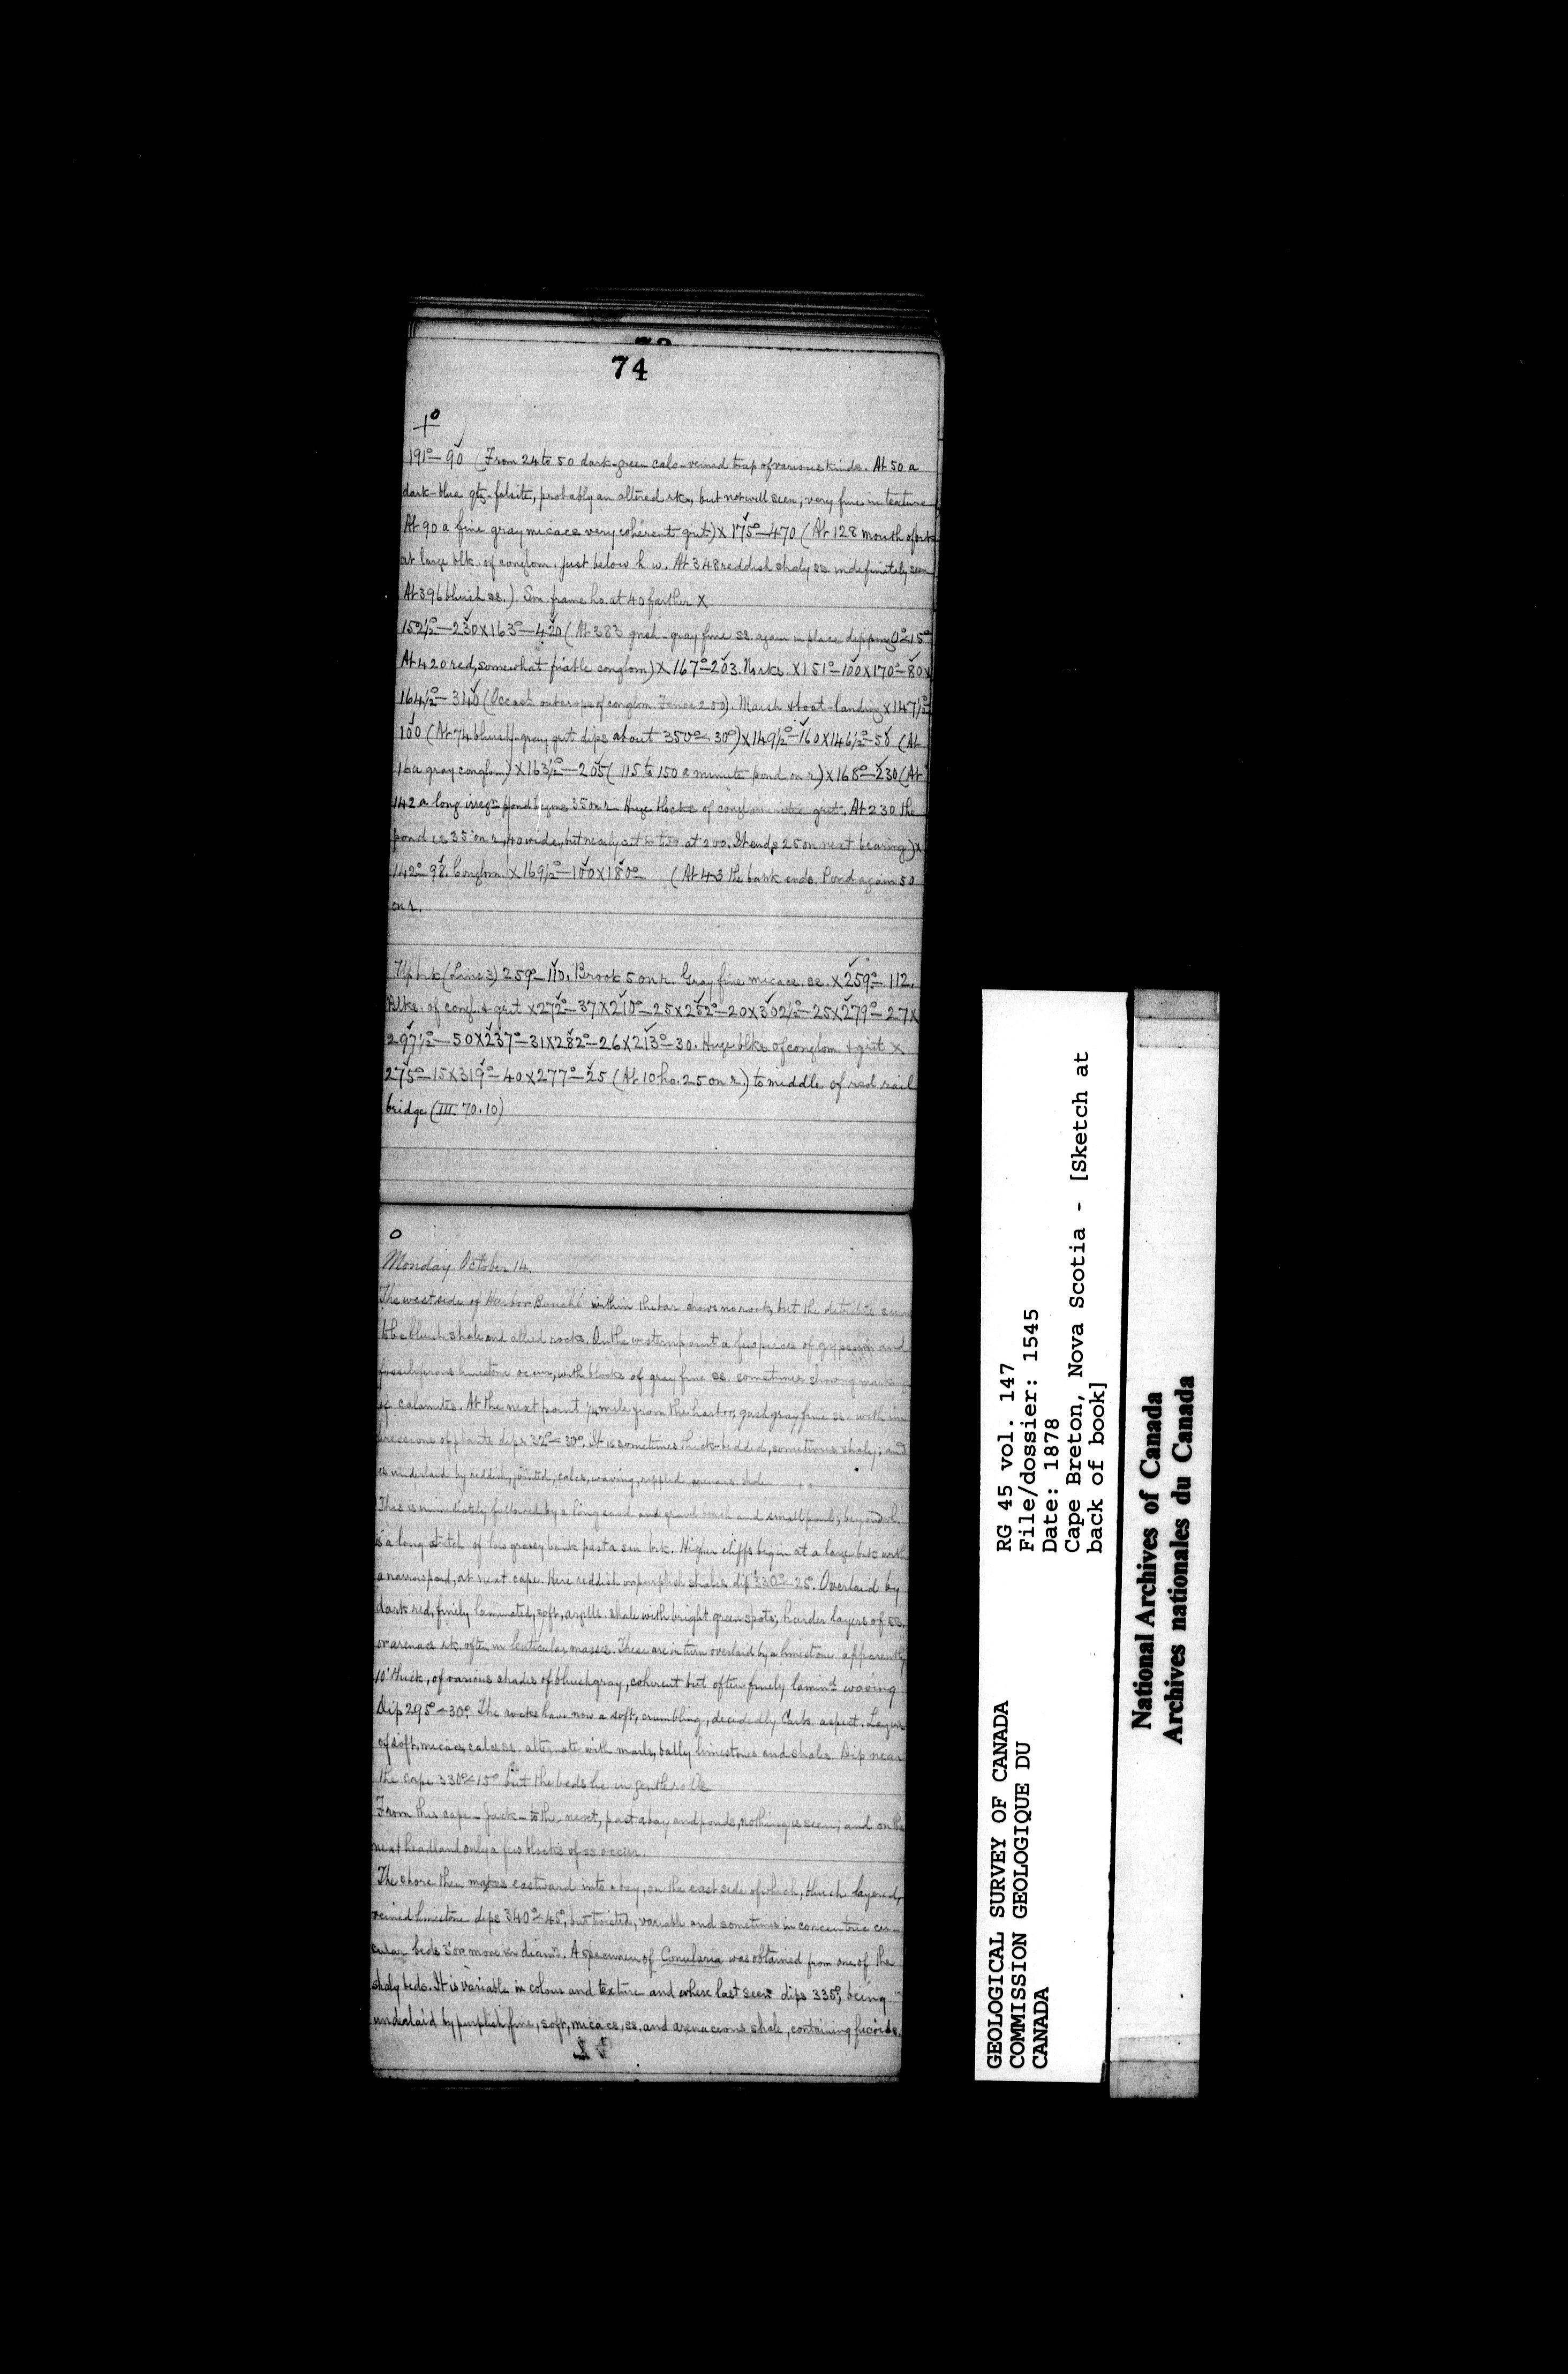 74
191° — 90 (From 24 to 50 dark-green calc-veined trap of various kinds. At 50 a
dark-blue qtz-felsite, probably an altered rk, but not well seen; very fine in texture
At 90 a fine gray micace very coherent grit) X 175° — 470 (At 128 mouth of brk
at large blk. of conglom. just below h.w. At 348 reddish shaly ss. indefinitely seen
At 396 bluish ss.) Sm frame ho. at 40 farther X
152½° — 230 X 163° — 420 (At 383 gnsh-gray fine ss. again in place dipping 0° < 15°
At 420 red, somewhat friable conglom) X 167° — 203. No rks. X 151° — 100 X 170° — 80 X
164½° — 340 (Occasl. outcrops of conglom Fence 200). Marsh & boat-landing X 147½°
100 (At 74 bluish-gray grit dips about 350° < 30°) X 149½° — 160 X 146½° — 58 (At
16 a gray conglom) X 163½° — 205 (115 to 150 a minute pond on r.) X 168° — 230 (At
142 a long irregr. pond begins 35 on r. Huge blocks of grit. At 230 the
pond is 35 on r, 40 wide, but nearly cut in two at 200. It ends 25 on next bearing) X
142° — 98. Conglom. X 169½° — 100 X 180° — (At 43 the bank ends. Pond again 50
on r.
Up brk (Line 3) 259° — 110. Brook 5 on r. Gray fine micace. ss. X 259° — 112.
Blks. of congl. & grit X 272° — 37 X 210° — 25 X 252° — 20 X 302½° — 25 X 279° — 27 X
297½° — 50 X 237° — 31 X 282° — 26 X 213° — 30. Huge blks of conglom & grit X
275° — 15 X 319° — 40 X 277° — 25 (At 10 ho. 25 on r.) to middle of red rail
bridge (III. 70.10)
Monday October 14.
The west side of Harbor Bouché within the bar shows no rock, but the detritus seems
to be bluish shale and allied rocks. On the western point a few pieces of gypsum and
fossiliferous limestone occur, with blocks of gray fine ss. sometimes showing markings
of calamites. At the next point ¼ mile from the harbor, gnsh gray fine ss. with im
pressions of plants dips 32° < 30°. It is sometimes thick-bedded, sometimes shaly; and
is underlaid by reddish, jointed, calca, waving, rippled arenacs. shale
This is immediately followed by a long sand and gravel beach and small pond, beyond wh.
is a long stretch of low grassy bank past a sm brk. Higher cliffs begin at a large brk with
a narrow pond, at next cape. Here reddish or purplish shales dip 330° < 25°. Overlaid by
dark red, finely laminated, soft, argills. shale with bright green spots; harder layers of ss.
or arenacs rk. often in lenticular masses. These are in turn overlaid by a limestone apparently
10' thick, of various shades of bluish gray, coherent but often finely lamind. waving
Dip 295° < 30°. The rocks have now a soft, crumbling, decidedly Carb. aspect. Layers
of soft, micacs, calcs ss. alternate with marls, bally limestones and shales. Dip near
the cape 330° < 15° but the beds lie in gentle rolls.
From this cape — Jack — to the next, past a bay and ponds, nothing is seen; and on the
next headland only a few blocks of ss occur.
The shore then makes eastward into a bay, on the east side of which, bluish layered,
veined limestone dips 340° < 45°, but twisted, variable and sometimes in concentric cir-
cular beds 3' or more in diamr. A specimen of Conularia was obtained from one of the
shaly beds. It is variable in colour and texture and where last seen dips 335°, being
underlaid by purplish, fine, soft, micacs, ss. and arenaceous shale, containing fucoids.
GEOLOGICAL SURVEY OF CANADA
COMMISSION GEOLOGIQUE DU
CANADA
RG 45 vol. 147
File/dossier: 1545
Date: 1878
Cape Breton, Nova Scotia - [Sketch at
back of book]
National Archives of Canada
Archives nationales du Canada